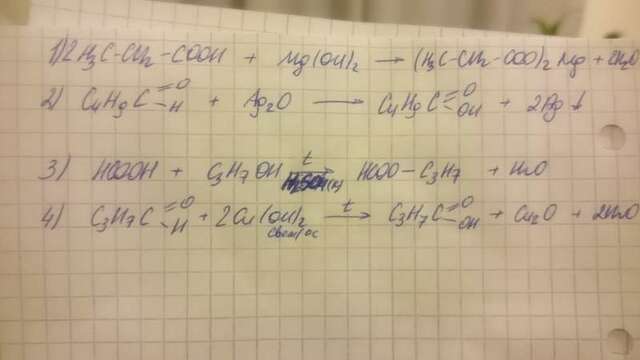 1) 2 H3C-CH2-COOH + Mg(OH)2 → (H3C-CH2-COO)2 Mg + 2H2O
2) C4H9C=O-H + Ag2O → C4H9C=O-OH + 2Ag↓
3) HCOOH + C3H7OH t→ H2SO4(к) HCOO-C3H7 + H2O
4) C3H7C=O-H + 2Cu(OH)2 свеж/ос t→ C3H7C=O-OH + Cu2O + 2H2O